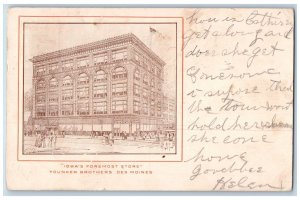 "IOWA'S FOREMOST STORE"
YOUNKER BROTHERS DES MOINES
how is Catherine
get along and
does she get
lonesome
i supose that
the town wont
hold her when
she come
home
goodbee
Helen